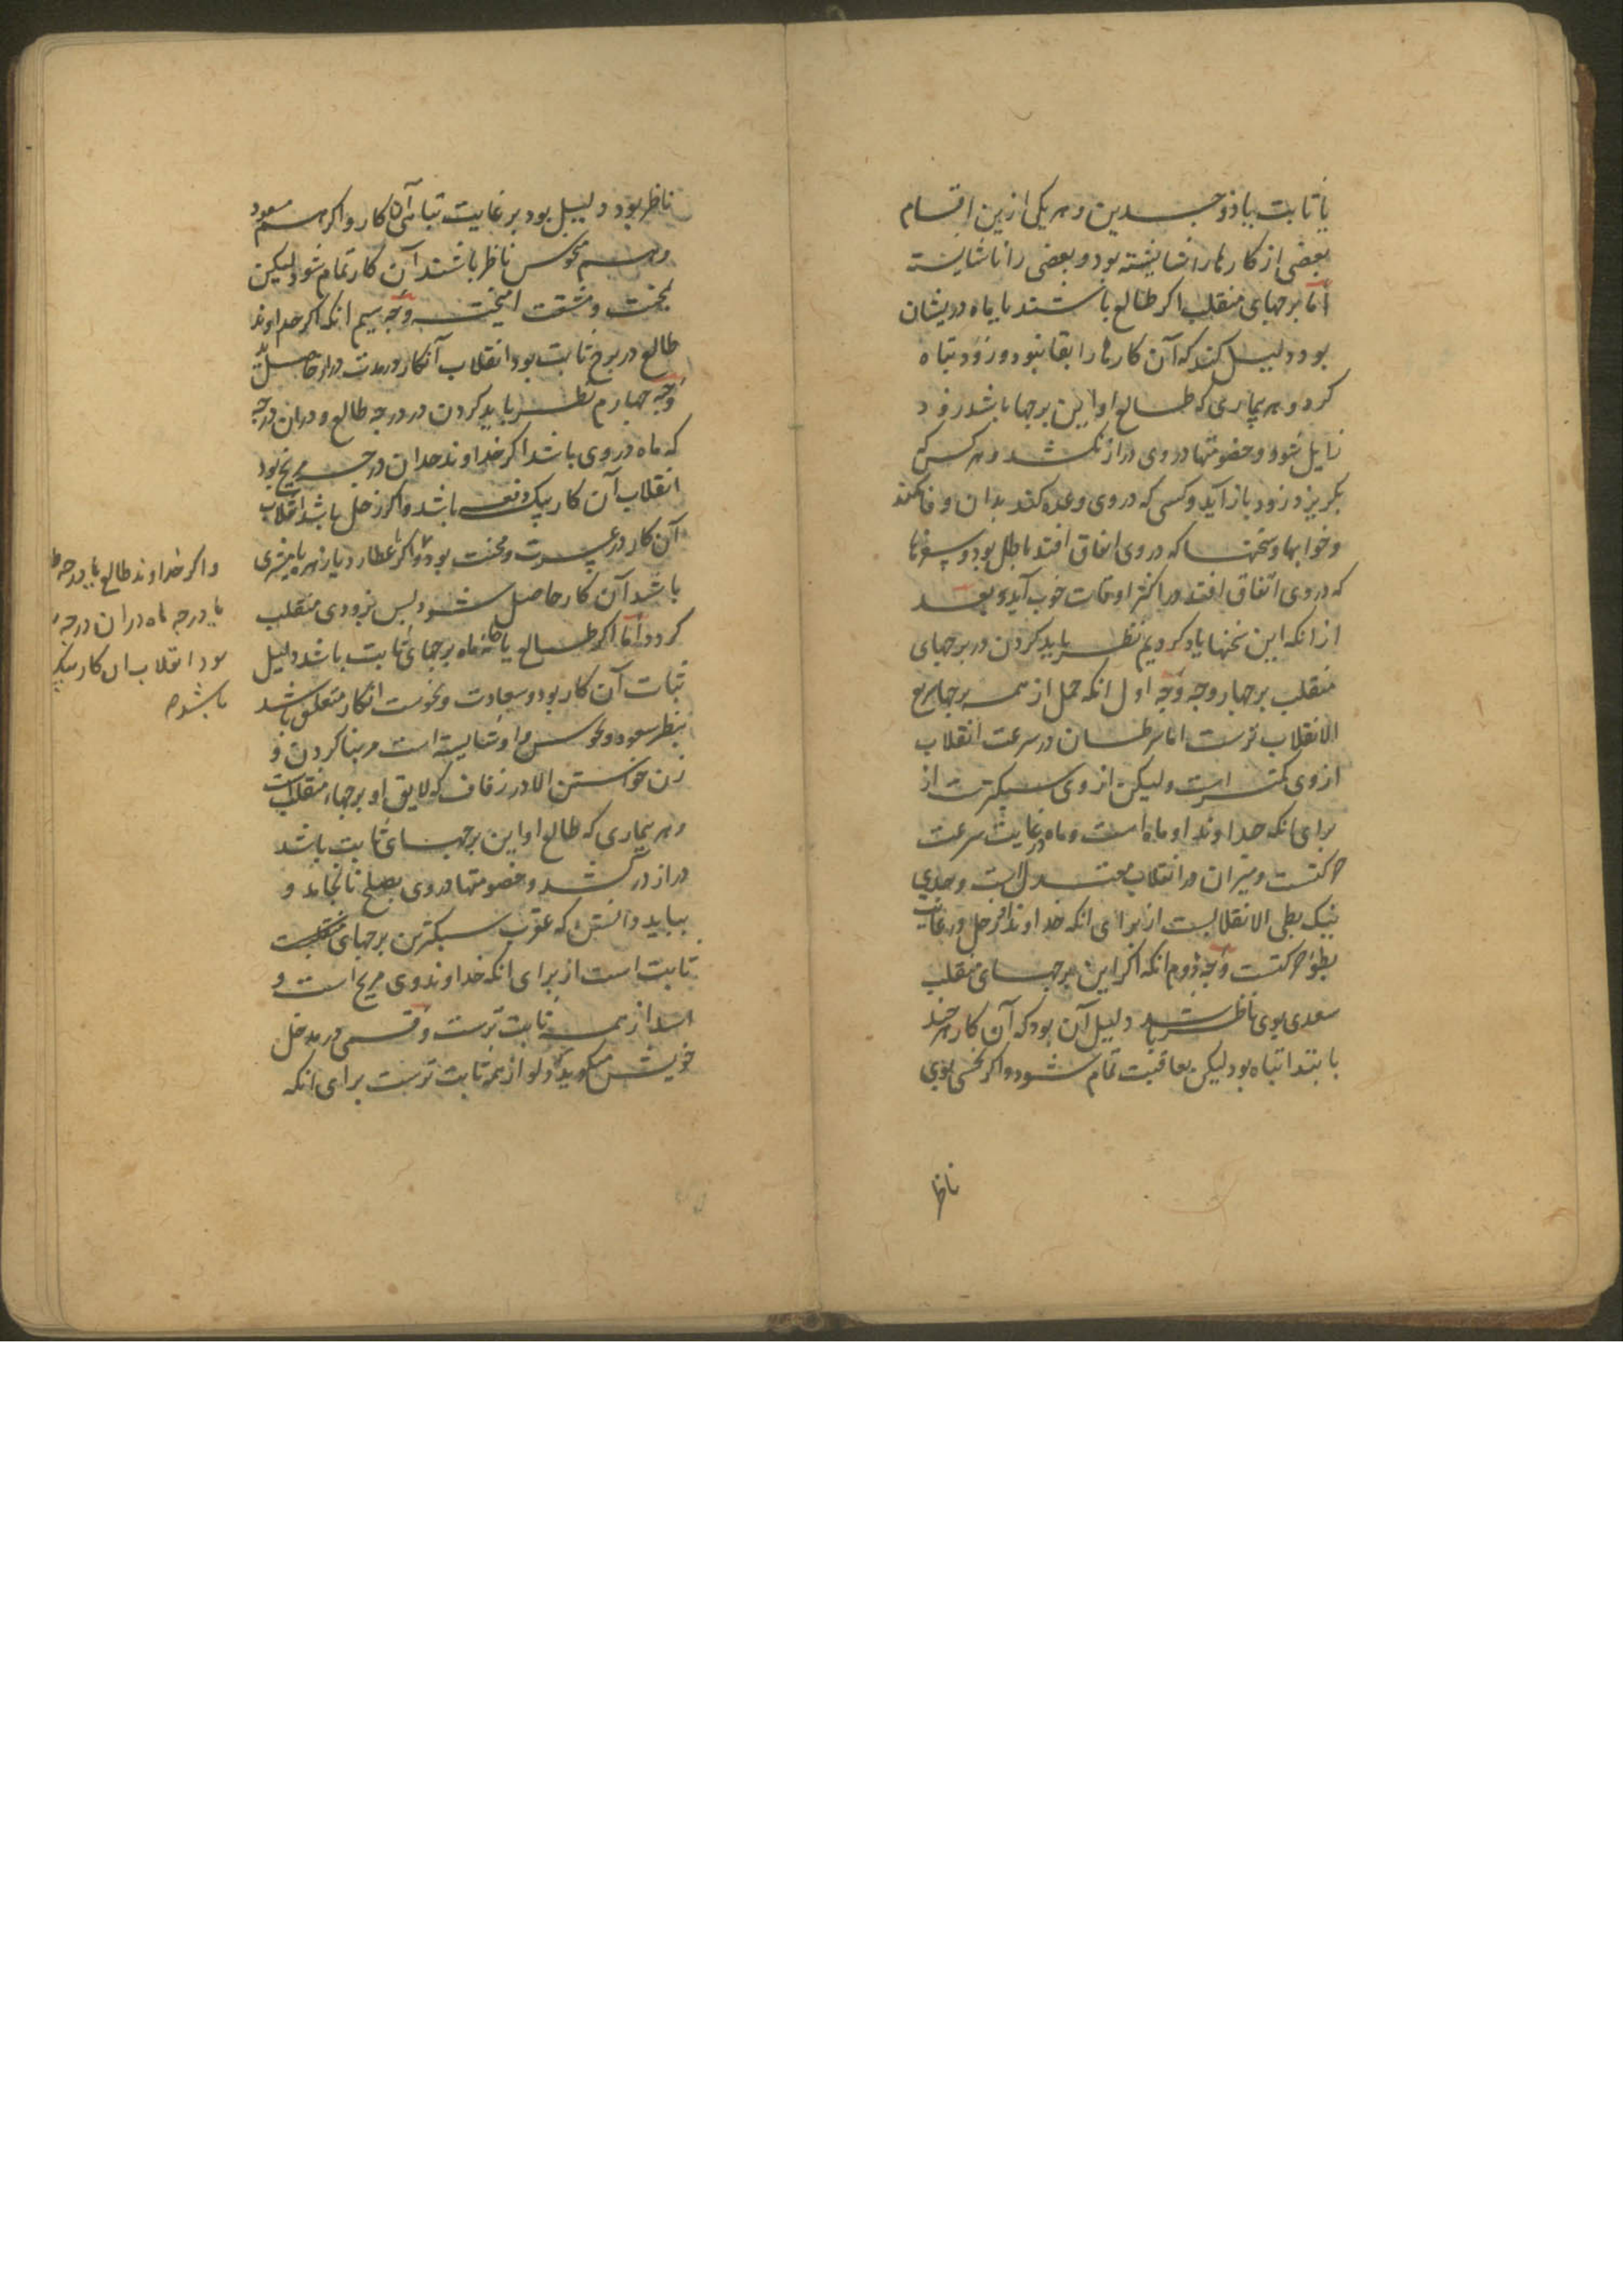 یا ثابت یا ذو جسدین و هر یکی ازین اقسام
بعضی از کارها را شایسته بود و بعضی را ناشایسته
اما برجهای منقلب اکر طالع باشند یا ماه دریشان
بود دلیل کند که آن کارها را بقا نبود و زود تباه
کردد و هر بیماری که طالع او این برجها باشد زود
زایل شود و خصومتها در وی دراز نکشد و هر کس که
بکریزد زود باز آید و کسی که در وی وعده کند بدان وفا نکند
و خوابها و سخنها که در وی اتفاق افتد باطل بود و سفرها
که در وی اتفاق افتد در اکثر اوقات خوب آید و بعد
از انکه این سخنها یاد کردیم نظر باید کردن در برجهای
منقلب بر چهار وجه وجه اول انکه حمل از همه برجها سریع
الانقلاب ترست اما سرطان در سرعت انقلاب
از وی کمتر است ولیکن از وی سبکترست از
برای انکه خداوند او ماه است و ماه در غایت سرعت
حرکتست و میزان در انقلاب معتدل است و جدی
نیک بطی الانقلابست از برای انکه خداوند او زحل در غایت
بطؤ حرکتست وجه دوم انکه اکر این برجهای منقلب
سعدی بوی ناظر باشد دلیل آن بود که آن کار هر چند
بابتدا تباه بود لیکن بعاقبت تمام شود و اکر نحسی بوی
ناظر
ناظر بود دلیل بود بر غایت تباهی آن کار و اکر هم سعود
و هم نحوس ناظر باشند آن کار تمام شود لیکن
بمحنت و مشقت امیخته وجه سیم انکه اکر خداوند
طالع در برج ثابت بود انقلاب آنکار در مدت دراز حاصل آید
وجه چهارم نظر باید کردن در درجه طالع و دران درجه
که ماه در وی باشد اکر خداوند حد ان درجه مریخ بود
انقلاب آن کار بیک دفعه باشد و اکر زحل باشد انقلاب
آن کار در عسرت و محنت بود و اکر عطارد یا زهره یا مشتری
باشد آن کار حاصل شود پس بزودی منقلب
کردد اما اکر طالع یا خانه ماه برجهای ثابت باشد دلیل
ثبات آن کار بود و سعادت و نحوست انکار متعلق باشد
بنظر سعود و نحوس و او شایسته است مر بنا کردن و
زن خواستن الا در زفاف که لایق او برجهاء منقلب است
و هر بیماری که طالع او این برجهای ثابت باشد
دراز در کشد و خصومتها در وی بصلح نانجامد و
بباید دانستن که عقرب سبکترین برجهای
ثابت است از برای انکه خداوند وی مریخ است و
اسد از همه ثابت ترست و قسمی در مدخل
خویش میکوید که دلو از همه ثابت ترست برای انکه
و اکر خداوند طالع یا درجه
یا درجه ماه دران درجه
بود انقلاب ان کار بیک
باشد